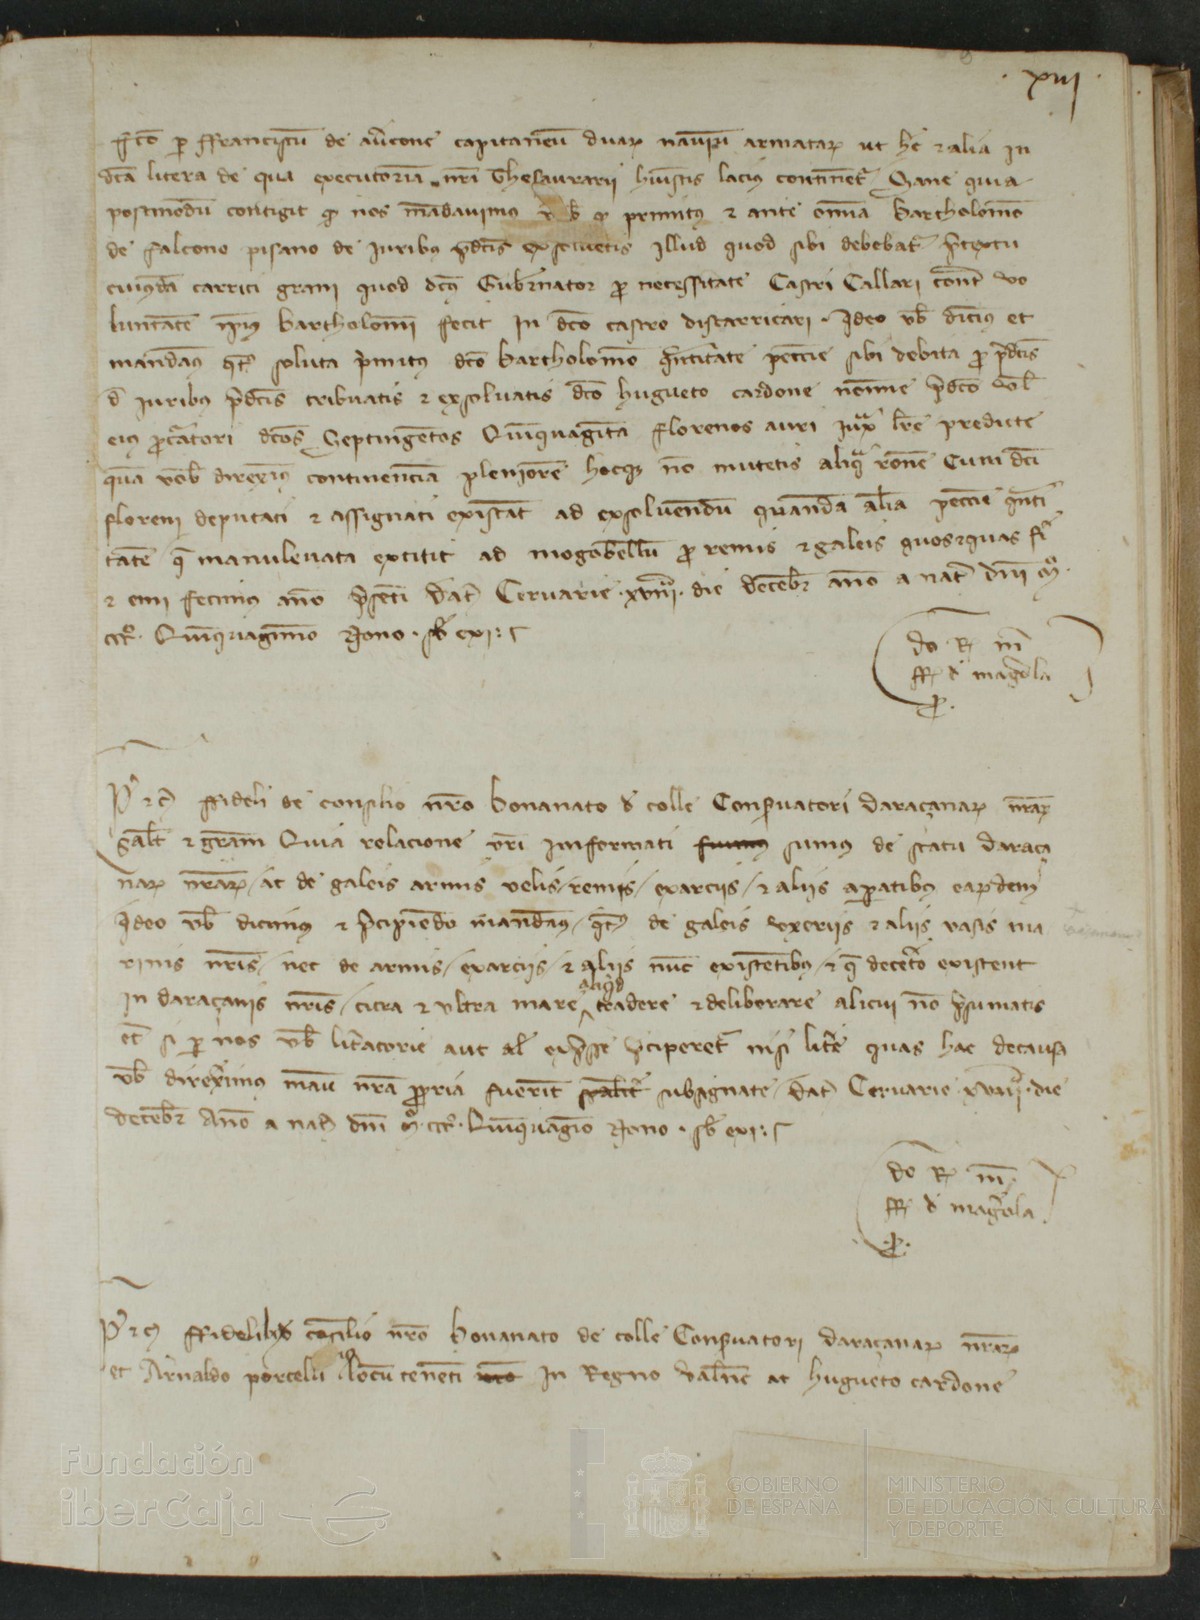 · xiij ·
ffco p ffranciscu de avicone capitaneu duar naviu armatar ut hec & alia in
dca litera de qua executoria nri thesaurarii huistis lacius continet Sane quia
postmodu contigit q nos madavimus q primitus & ante omnia Bartholomeo
de falcono pisano de iuribus pdcis exsolvetis illud quod sibi debebat pretextu
cuiusda carrici grani quod dcus Gubernator p necessitate Castri Callari cont vo
luntate ipius bartholomei fecit in dco castro discarricari · Ideo vob dicimus et
mandamus qt soluta primitus dco bartholomeo quantitate peccunie sibi debita p pdcis
d iuribus pdcis tribuatis & exsolvatis dco hugueto cardone nomine pdco vel
eius pcuratori dcos Septingentos Quinquaginta florenos auri iuxa lre predicte
qua vob direximus continencia pleniore hocq no mutetis aliqua rone Cum dci
floreni deputati & assignati existat ad exsolvendu quanda alia peccunie quanti
tate q manulevata extitit ad mogobellu p remis & galeis quos & quas fi
& emi fecimus ano psenti Dat Cervarie · xviiii · die decebr ano a nat dni mo
ccco · Quinquagesimo Nono · sb exa : s
do R m
ff d magrola
p ·
P & c ffideli de consilio nro Bonanato d colle Conservatori daraçanar nrar
salt & gram Quia relacione vri imformati fuimus sumus de statu daraça
nar nrar / ac de galeis armis velis / remis / exarciis / & aliis aparatibus earudem
Ideo vob dicimus & pcipiendo mandamus / qt de galeis exeriis & aliis vasis ma
rinis nris / nec de armis / exarciis / & aliis nuc existentibus / & q decetero existent
in daraçanis nris / citra & ultra mare aliqd tradere & deliberare alicui no psumatis
et si p nos vob litatorie aut al expsse pciperet nisi litere quas hac de causa
vob direximus manu nra ppria fuerint subsignate / dat Cervarie xviiii · die
decebr Ano a nat dni mo · ccco · Quinquagio Nono · sb exa : s
do R m
ff d magrola
· p ·
P & c ffidelibus cosilio nro Bonanato de colle Conservatori daraçanar nrar
et Arnaldo porcelli locu teneti in Regno valne ac hugueto cardone
Fundación
iberCaja
GOBIERNO
DE ESPAÑA
MINISTERIO
DE EDUCACIÓN, CULTURA
Y DEPORTE